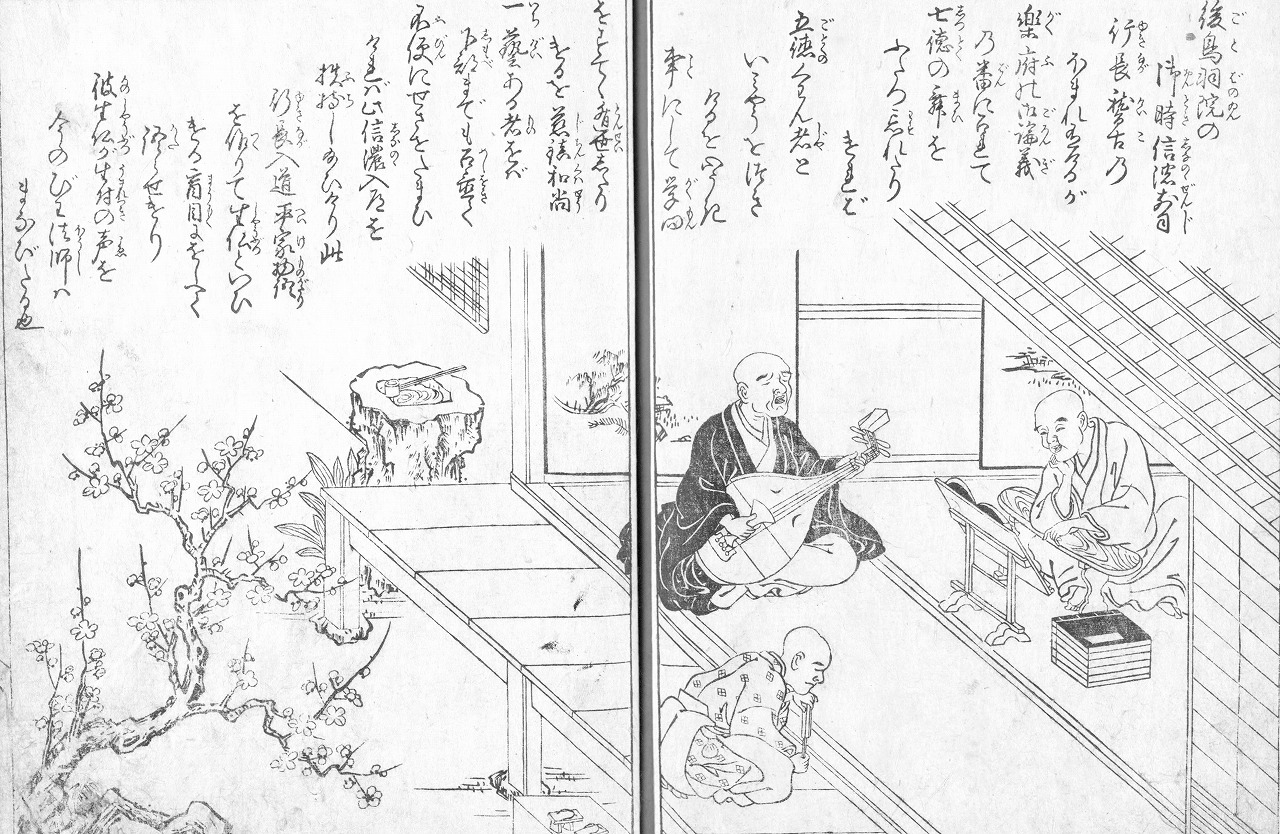 後鳥羽院の
御時信濃前司
行長稽古乃
ほまれ有けるが
楽府の御論義
乃番にめされて
七徳の舞を
ふたつ忘れたり
ければ
五徳くわん者と
いミやうをつき
にけるを心うき
事にして学問
をすてゝ遁世したり
けるを慈鎮和尚
一藝ある者をば
下部までも召置て
不便にせさせたまひ
ければ此信濃入道を
扶持し給ひけり此
行長入道平家物語
を作りて生仏といひ
ける盲目にをしへて
語らせけり
彼生仏が生付の声を
今のびわ法師ハ
まなびたる也